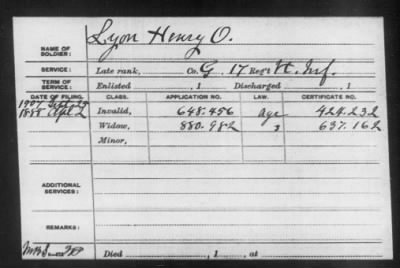 NAME OF SOLDIER: Lyon Henry O.
SERVICE: Late rank, Co. G. 17 Reg't Vt. Inf.
TERM OF SERVICE: Enlisted , 1 Discharged , 1
DATE OF FILING. CLASS. APPLICATION NO. LAW. CERTIFICATE NO.
1907 Sept 25 Invalid, 648.456 age 424.232
188 Apl 2 Widow, 880.982 3 637.162
Minor,
ADDITIONAL SERVICES:
REMARKS:
Died , 1 , at